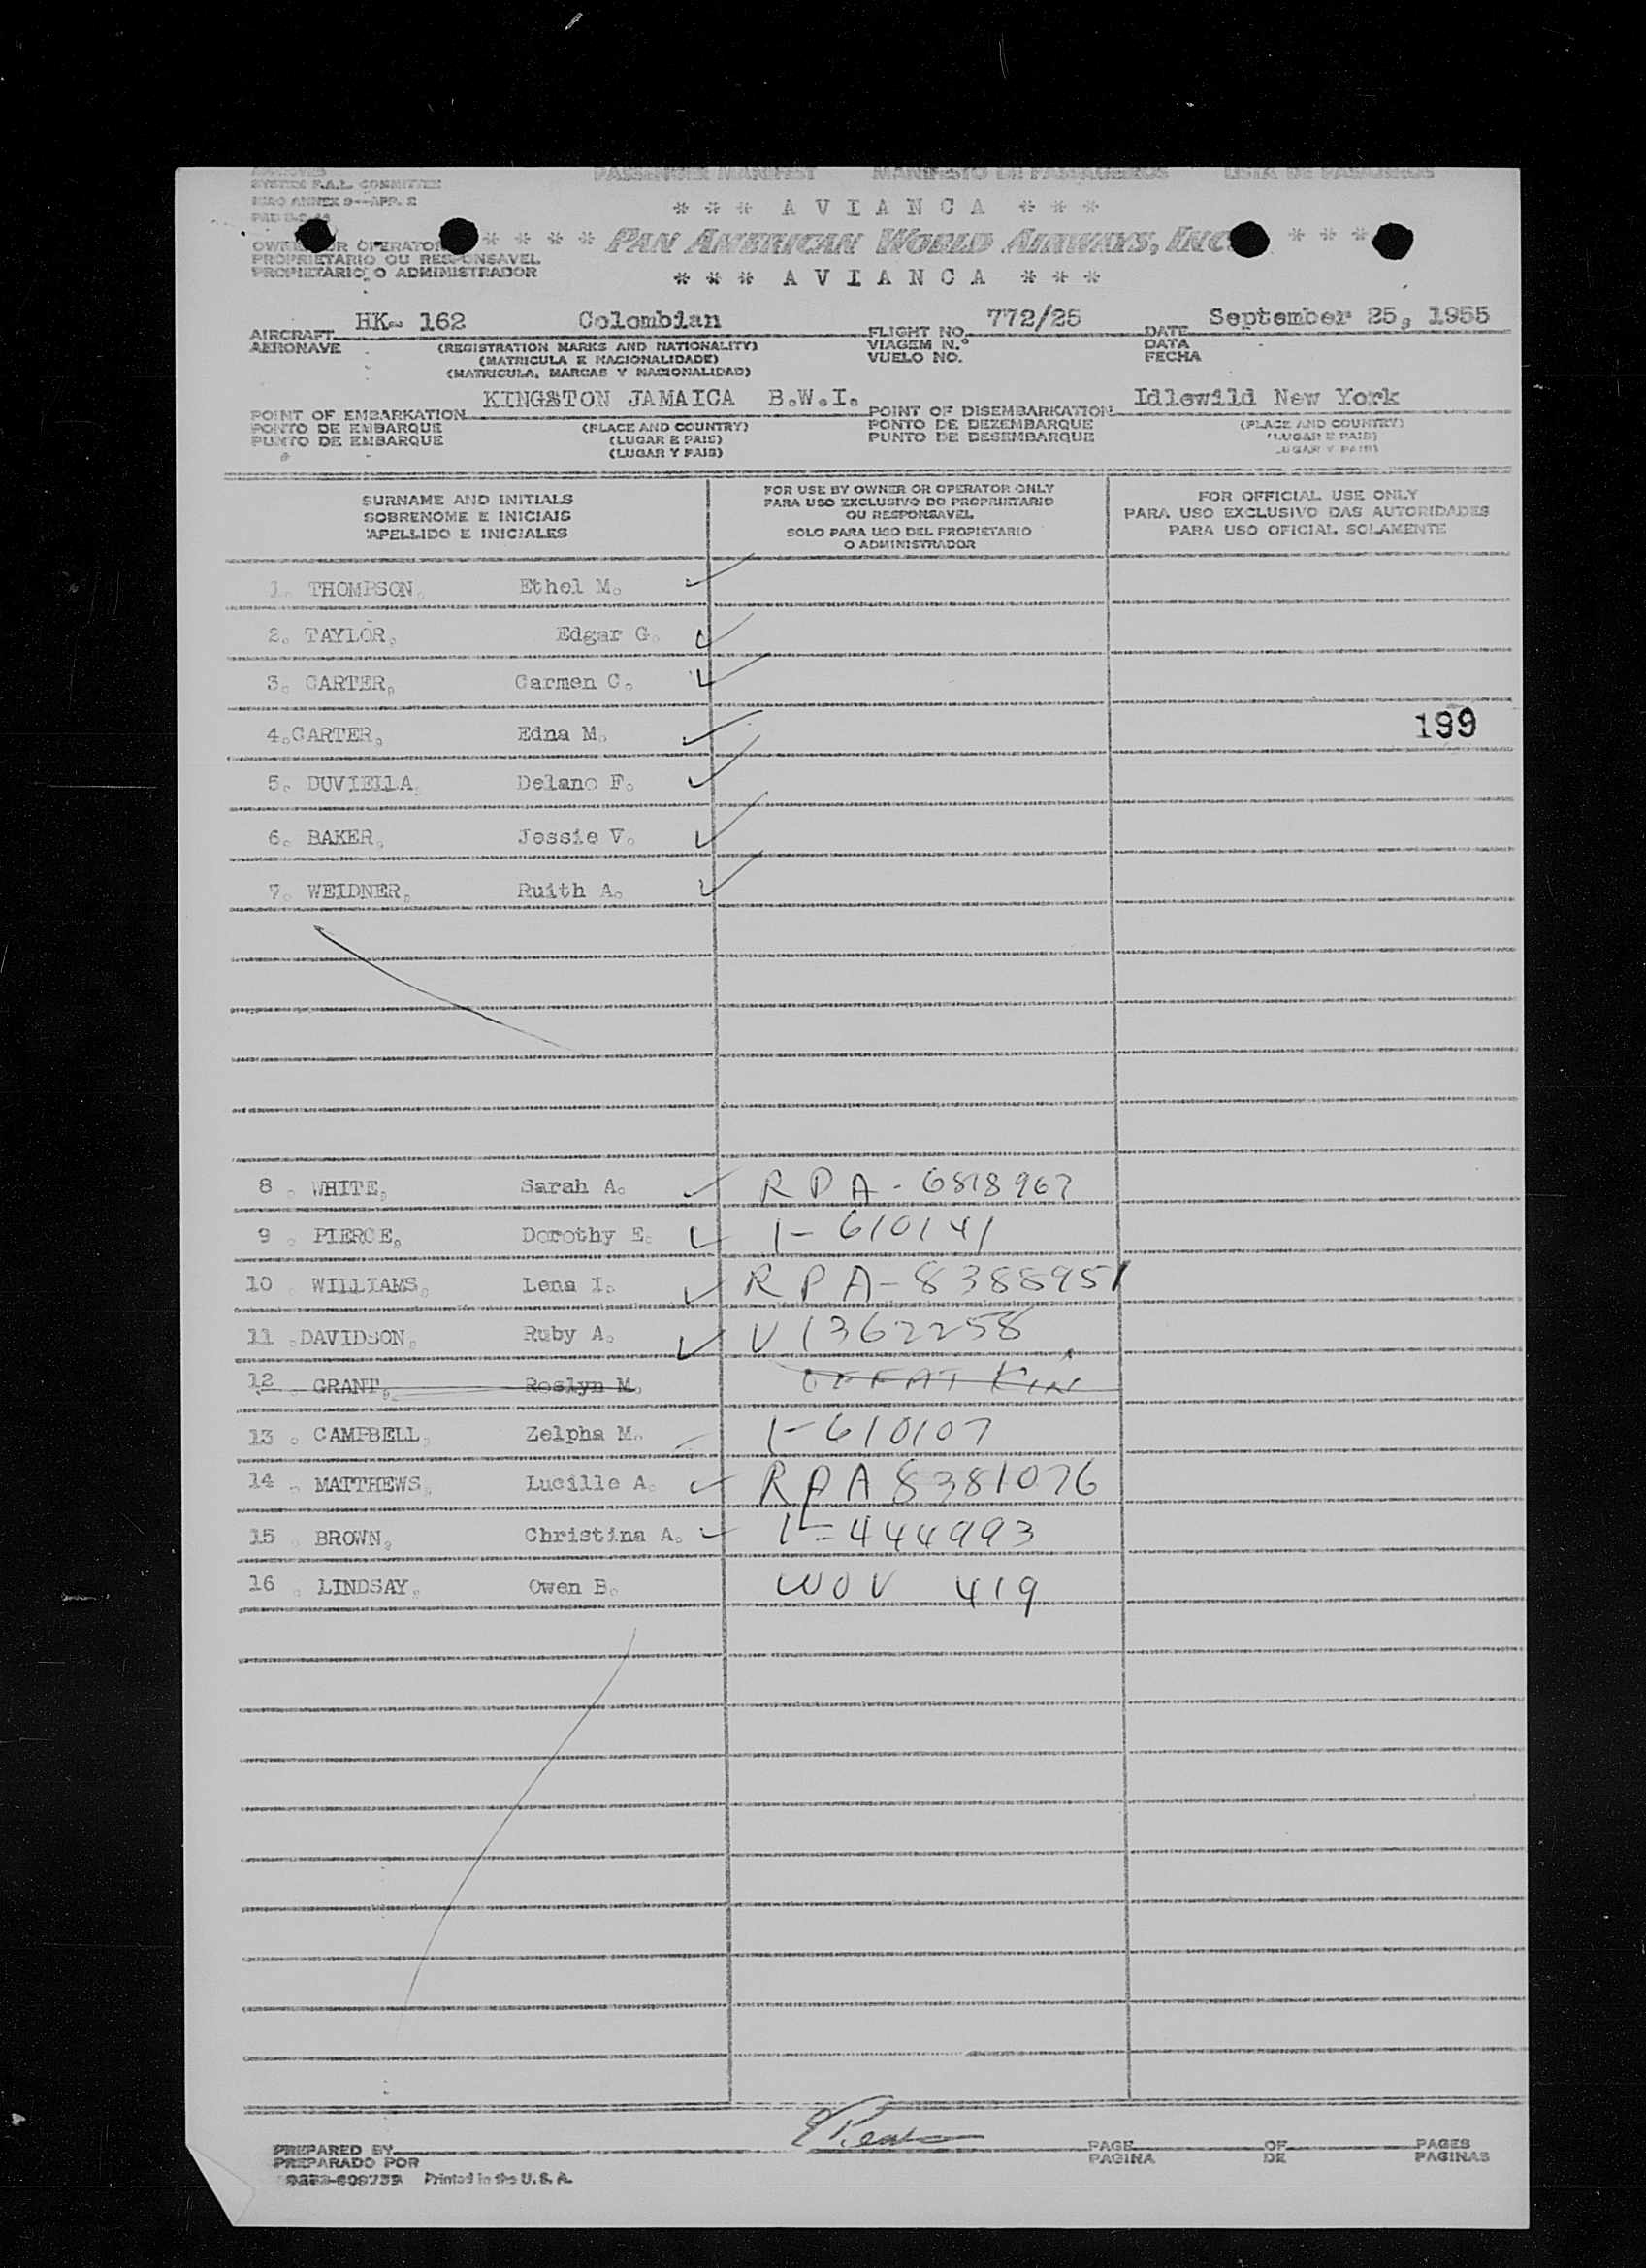 APPROVED
SYSTEM F.A.L. COMMITTEE
ICAO ANNEX 9--APP. 2
PASSENGER MANIFEST MANIFESTO DE PASSAGEIROS LISTA DE PASAJEROS
* * * A V I A N C A * * *
OWNER OR OPERATOR * * * * PAN AMERICAN WORLD AIRWAYS, INC. * * *
PROPRIETARIO OU RESPONSAVEL
PROPIETARIO O ADMINISTRADOR
* * * A V I A N C A * * *
AIRCRAFT HK- 162 Colombian FLIGHT NO. 772/25 DATE September 25, 1955
AERONAVE (REGISTRATION MARKS AND NATIONALITY) VIAGEM N.º DATA
(MATRICULA E NACIONALIDADE) VUELO NO. FECHA
(MATRICULA, MARCAS Y NACIONALIDAD)
POINT OF EMBARKATION KINGSTON JAMAICA B.W.I. POINT OF DISEMBARKATION Idlewild New York
PONTO DE EMBARQUE (PLACE AND COUNTRY) PONTO DE DEZEMBARQUE (PLACE AND COUNTRY)
PUNTO DE EMBARQUE (LUGAR E PAIS) PUNTO DE DESEMBARQUE (LUGAR E PAIS)
(LUGAR Y PAIS) LUGAR Y PAIS)
SURNAME AND INITIALS
SOBRENOME E INICIAIS
APELLIDO E INICIALES
FOR USE BY OWNER OR OPERATOR ONLY
PARA USO EXCLUSIVO DO PROPRIETARIO
OU RESPONSAVEL
SOLO PARA USO DEL PROPIETARIO
O ADMINISTRADOR
FOR OFFICIAL USE ONLY
PARA USO EXCLUSIVO DAS AUTORIDADES
PARA USO OFICIAL SOLAMENTE
1. THOMPSON, Ethel M.
2. TAYLOR, Edgar G.
3. CARTER, Carmen C.
4.CARTER, Edna M. 199
5. DUVIELLA, Delano F.
6. BAKER, Jessie V.
7. WEIDNER, Ruith A.
8 . WHITE, Sarah A. RPA-6818967
9 . PIERCE, Dorothy E. 1-610141
10 . WILLIAMS, Lena I. RPA-8388951
11 .DAVIDSON, Ruby A. V1362258
12 . GRANT, Roslyn M.
13 . CAMPBELL, Zelpha M. 1-610107
14 . MATTHEWS, Lucille A. RPA 8381076
15 . BROWN, Christina A. 1-444993
16 . LINDSAY, Owen B. WOV 419
PREPARED BY PAGE OF PAGES
PREPARADO POR PAGINA DE PAGINAS
Printed in the U. S. A.